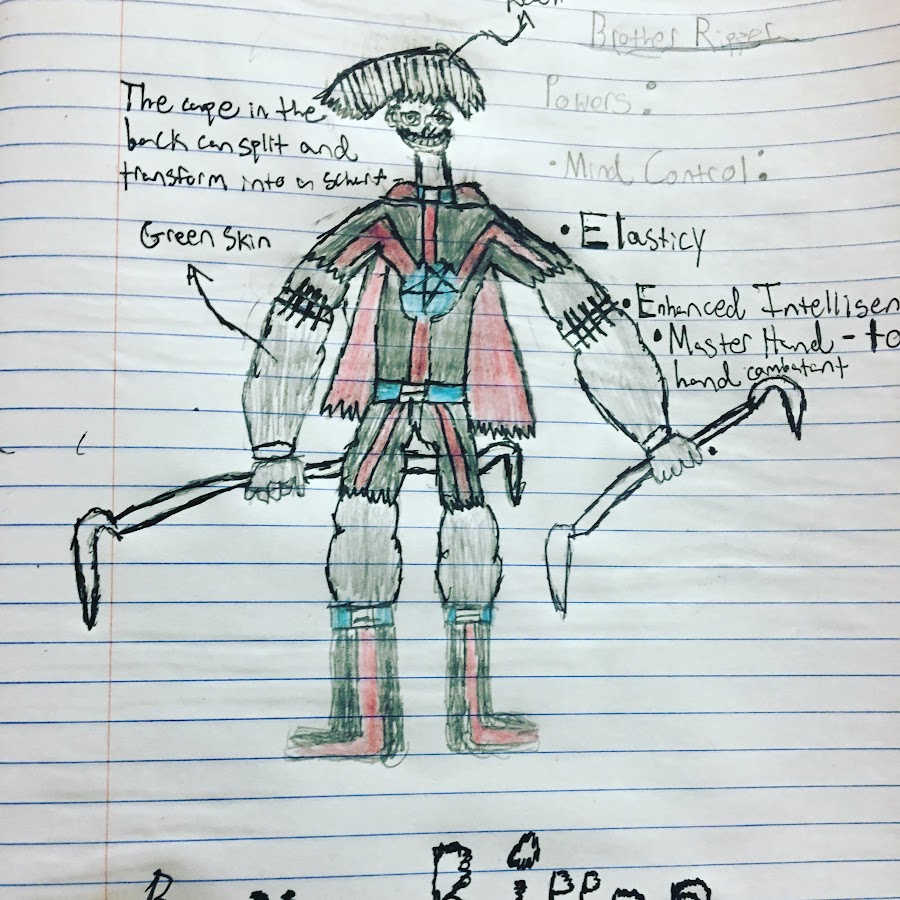 Brother Ripper
Powers:
The cape in the
back can split and
transform into a schert
Green Skin
• Mind Control:
• Elasticy
• Enhanced Intelligen
• Master Hand - to
hand combatant
Ripper